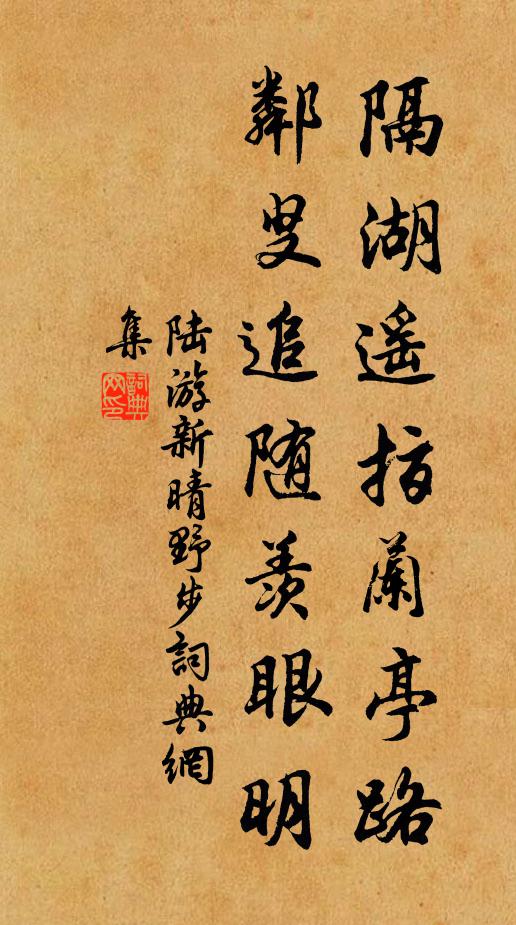 隔湖遥指蘭亭路
鄰叟追随羡眼明
陆游新晴野步詞典網
集
詞典网印